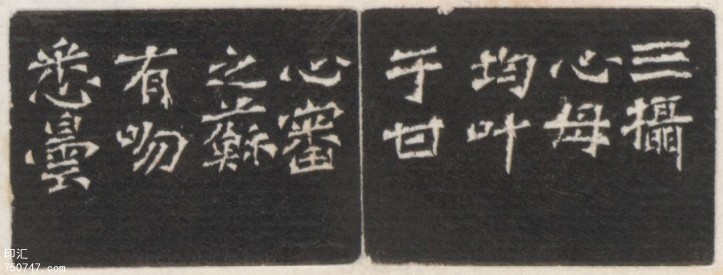 三攝
心母
均叶
于甘
心審
之蘇
有吻
悉曇
印汇
750747.com